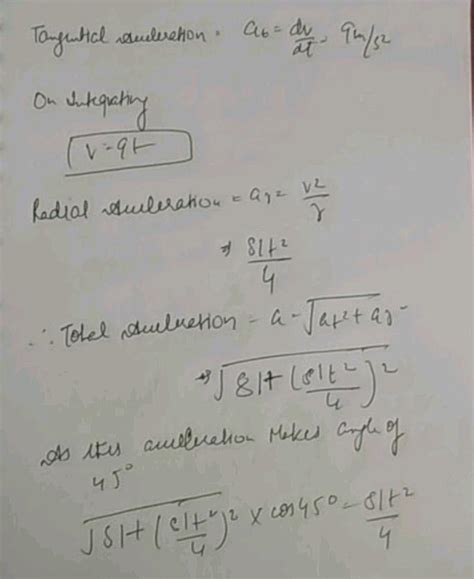 Tangential acceleration = at = dv/dt = 9m/s2
On integrating
v=9t
Radial acceleration = ar = v2/r
⇒ 81t2/4
∴ Total acceleration = a = √at2 + ar2
⇒ √81+(81t2/4)2
As this acceleration makes angle of
45°
√81+(81t2/4)2 x cos45° = 81t2/4